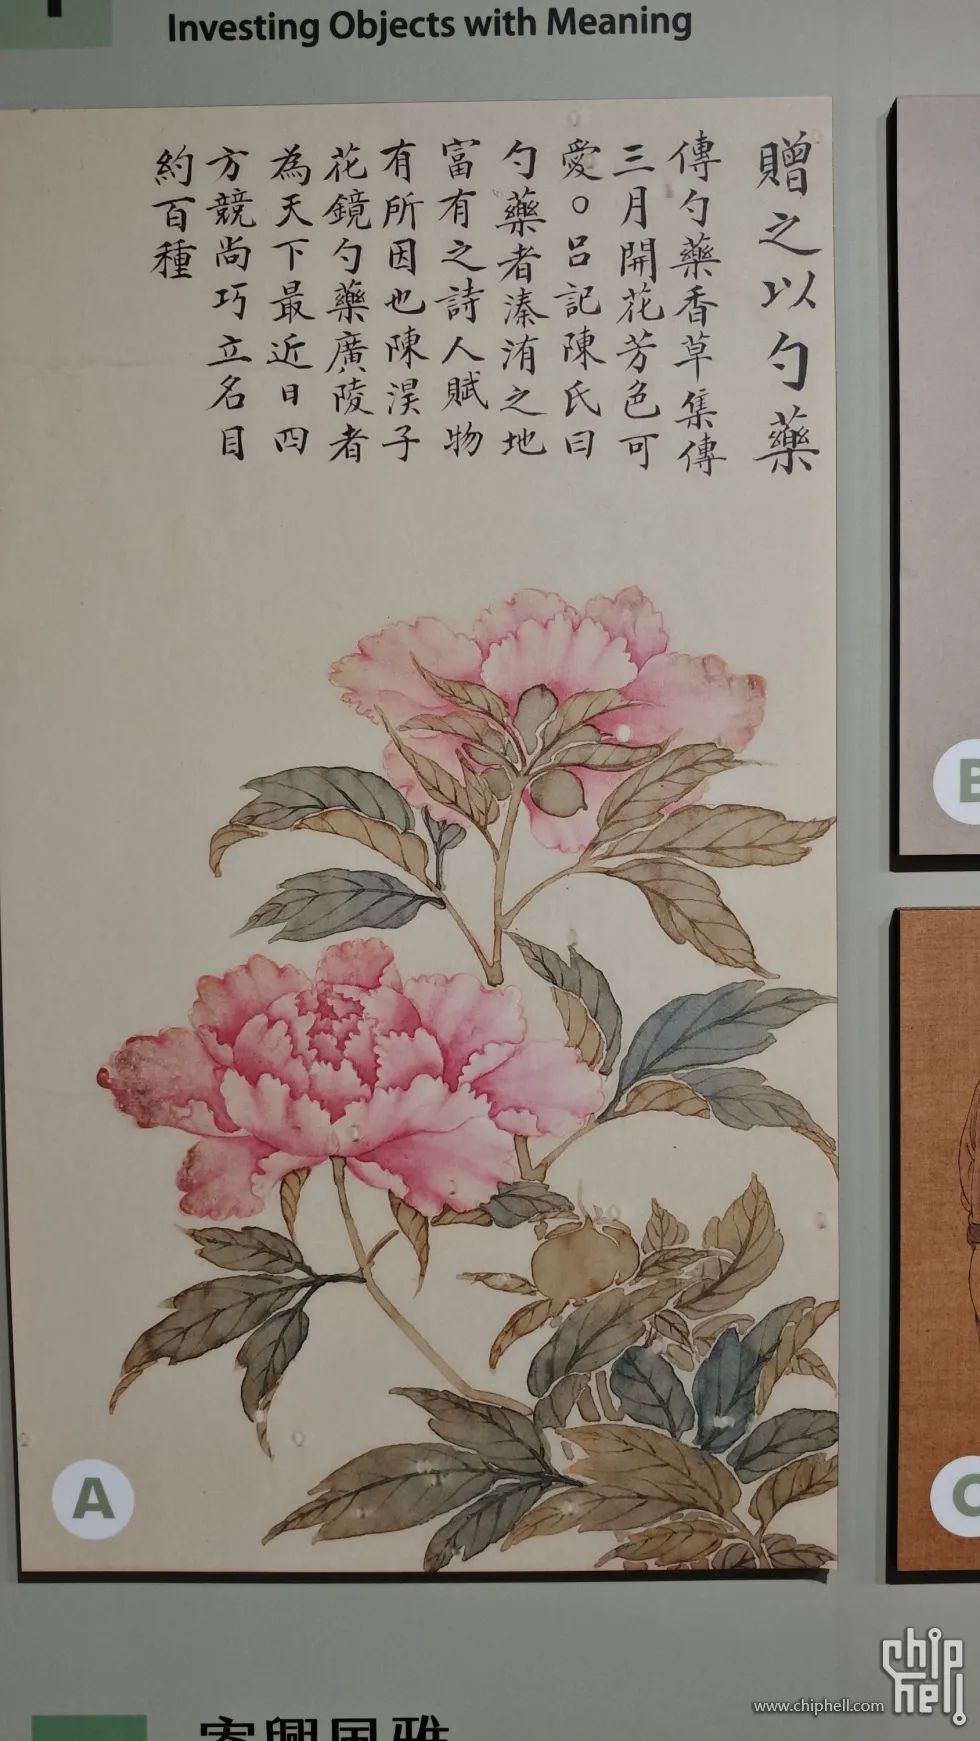 Investing Objects with Meaning
贈之以勺藥
傳勺藥香草集傳
三月開花芳色可
愛○呂記陳氏曰
勺藥者溱洧之地
富有之詩人賦物
有所因也陳淏子
花鏡勺藥廣陵者
為天下最近日四
方競尚巧立名目
約百種
A
B
C
www.chiphell.com
chip
hell
寄興風雅